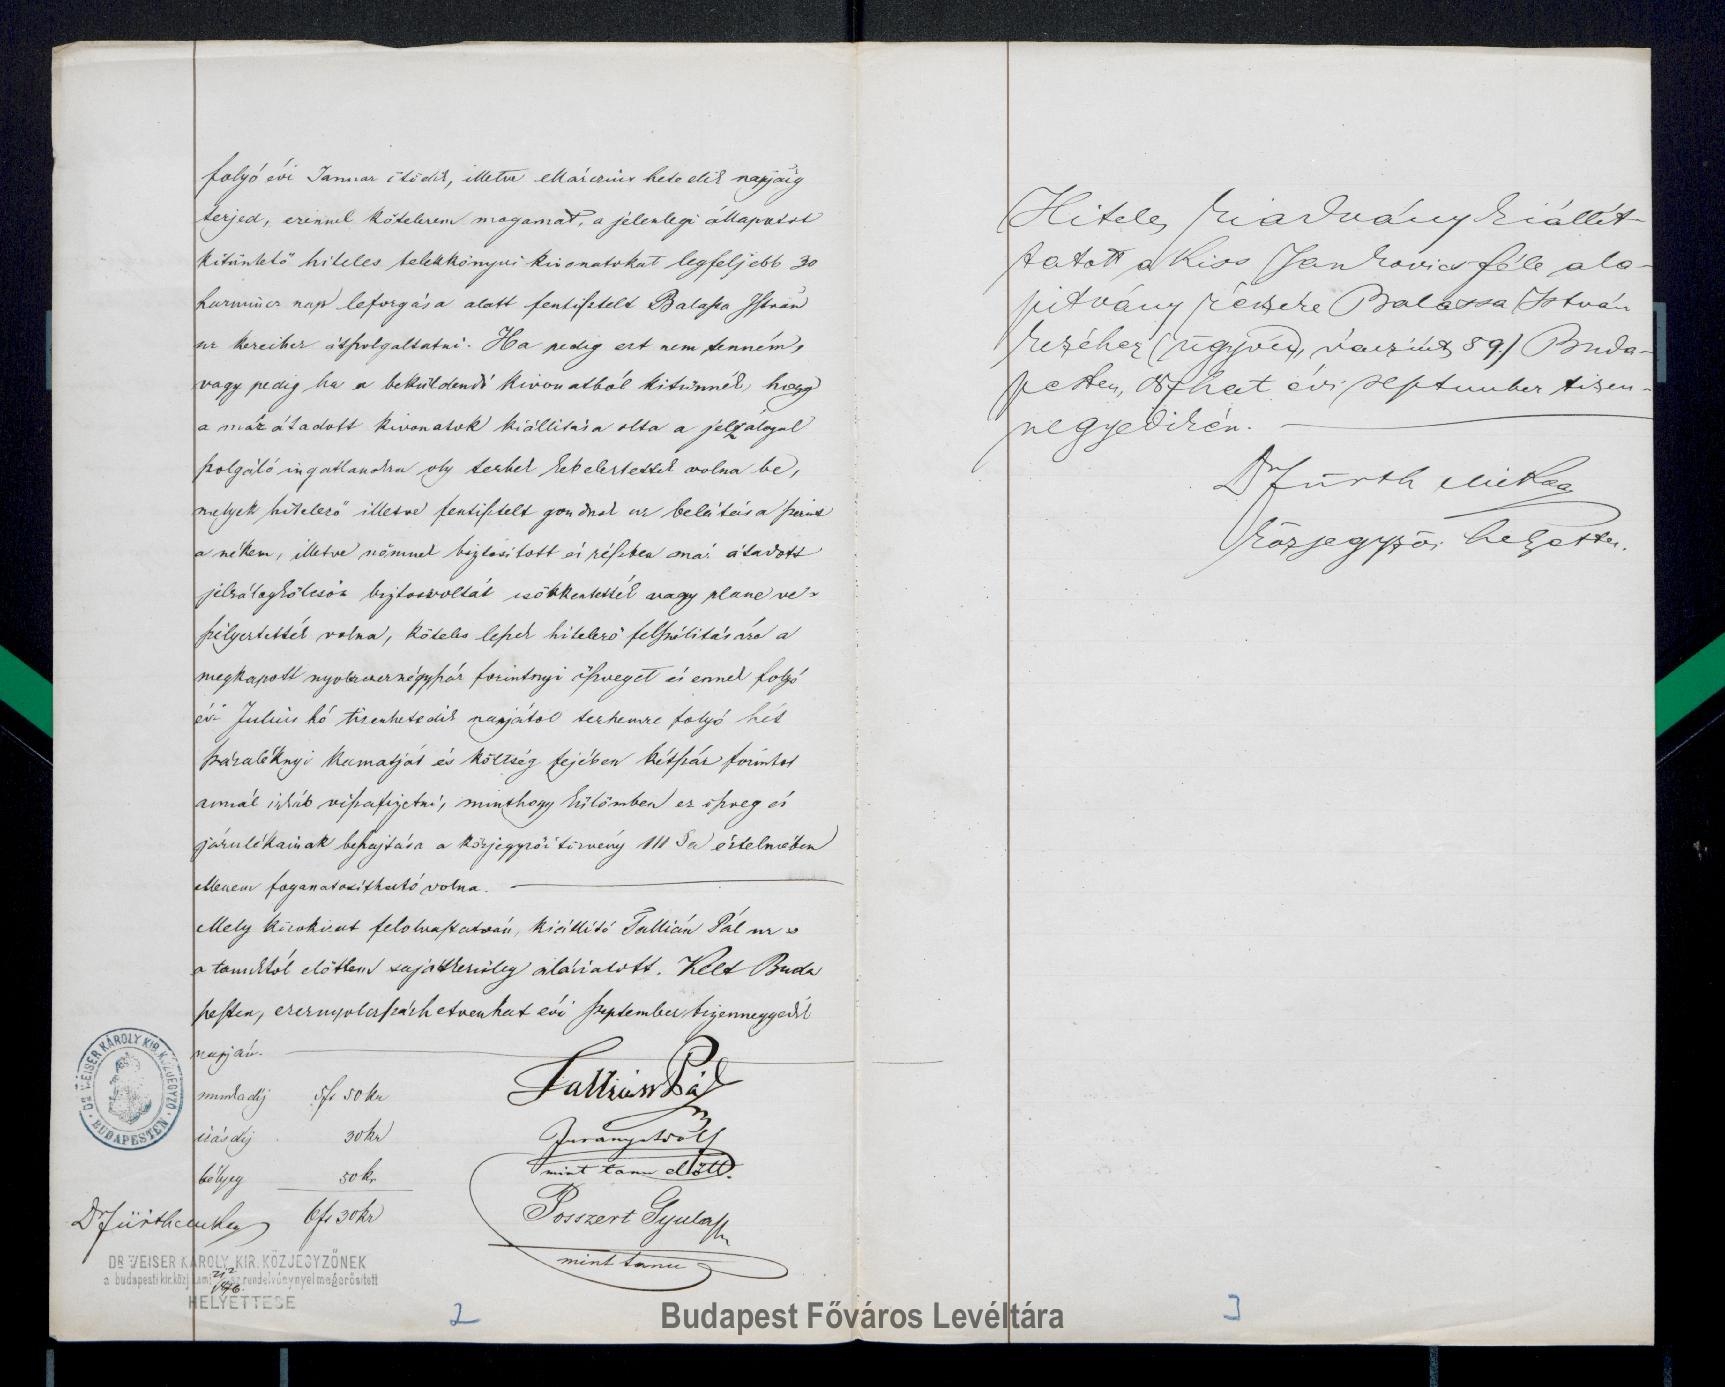 folyó évi Januar ötödik, illetve Márczius hetedik napjáig
terjed, ezennel kötelezem magamat, a jelenlegi állapotot
kitüntető hiteles telekkönyvi kivonatokat legfeljebb 30
harmincz nap leforgása alatt fentisztelt Balassa István
ur kezeihez átszolgáltatni. Ha pedig ezt nem tenném,
vagy pedig ha a beküldendő kivonatból kitünnék, hogy
a már átadott kivonatok kiállitása olta a jelzálogul
szolgáló ingatlanokra oly terhek kebeleztettek volna be,
melyek hitelező illetve fentisztelt gondnok ur belátása szerint
a nékem, illetve nőmnek biztositott és részben már átadott
jelzálogkölcsön biztosvoltát csökkentették vagy plane ve-
szélyeztették volna, köteles leszek hitelező felszólitására a
megkapott nyolczezernégyszáz forintnyi összeget és ennek folyó
évi Julius hó tizenhetedik napjától terhemre folyó hét
százaléknyi kamatját és költség fejében kétszáz forintot
annál inkáb visszafizetni, minthogy különben ez összeg és
járulékainak behajtása a közjegyzői törvény 111 §a értelmében
ellenem foganatositható volna.
Mely közokirat felolvastatván, kiállitó Tallián Pál ur s
a tanuktól előttem sajátkezüleg aláiratott. Kelt Buda
pesten, ezernyolczszázhetvenhat évi szeptember tizennegyedik
napján.
munkadij 5 fr 50 kr
irásdij 30 kr
bélyeg 50 kr
6 fr 30 kr
Tallián Pál
mint tanu előtt.
Posszert Gyula
mint tanu
DR WEISER KÁROLY KIR. KÖZJEGYZŐ
BUDAPESTEN
DR WEISER KÁROLY KIR. KÖZJEGYZŐNEK
a budapesti kir. közj. kam. rendelvénynyel megerősitett
HELYETTESE
2
Hiteles kiadvány kiállit-
tatott a Kiss Jankovics féle ala-
pitvány részére Balassa István
kezéhez (ügyvéd, váczi út 59) Buda-
pesten, 876 hat évi september tizen-
negyedikén.
Dr Fürth Miksa
közjegyzői helyettes.
3
Budapest Főváros Levéltára